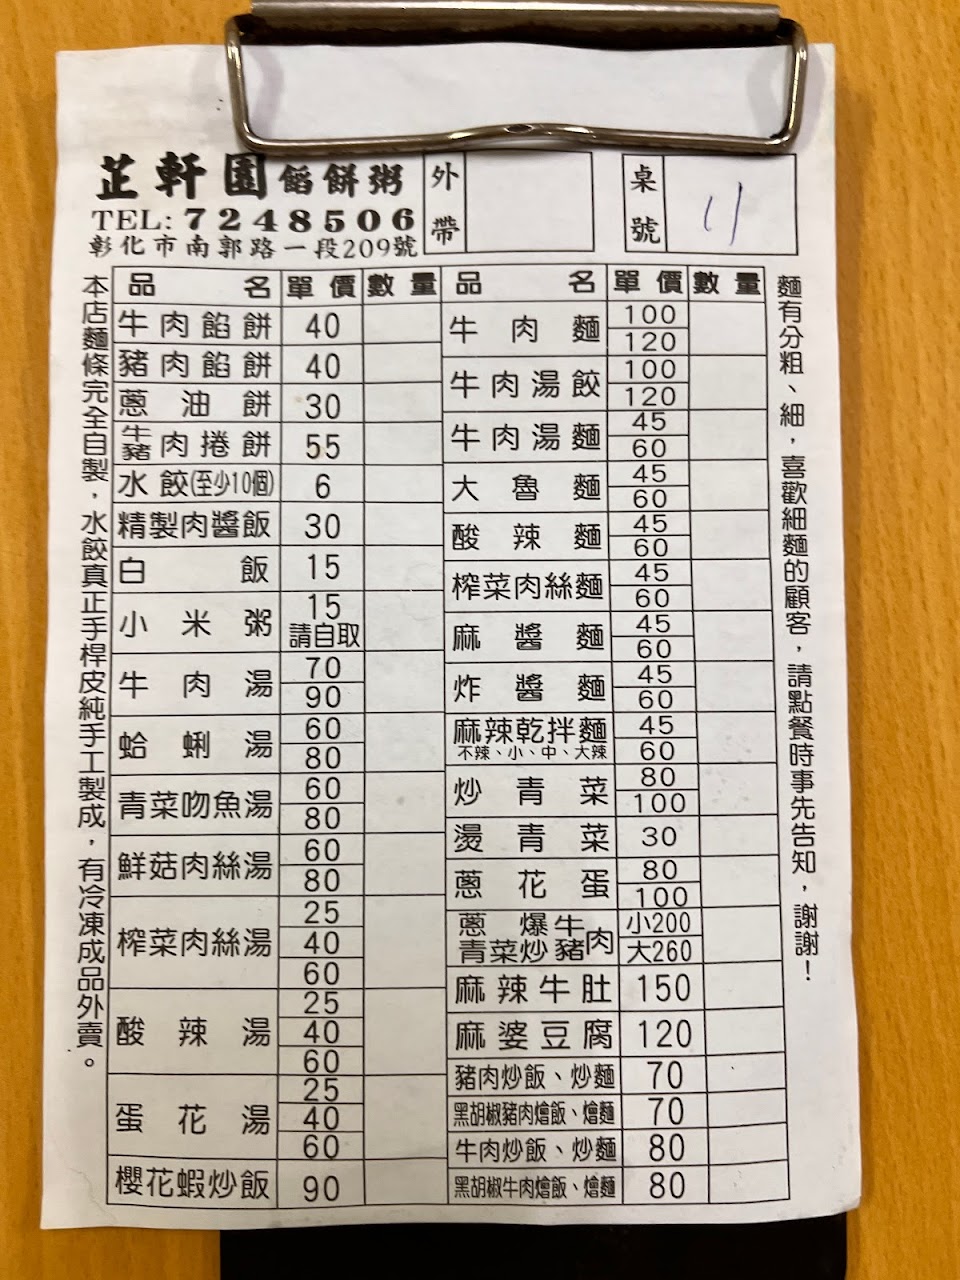 芷軒園餡餅粥
TEL: 7248506
彰化市南郭路一段209號
外帶
桌號 11
本店麵條完全自製，水餃真正手桿皮純手工製成，有冷凍成品外賣。
品名 單價 數量
牛肉餡餅 40
豬肉餡餅 40
蔥油餅 30
牛豬肉捲餅 55
水餃(至少10個) 6
精製肉醬飯 30
白飯 15
小米粥 15 請自取
牛肉湯 70 90
蛤蜊湯 60 80
青菜吻魚湯 60 80
鮮菇肉絲湯 60 80
榨菜肉絲湯 25 40 60
酸辣湯 25 40 60
蛋花湯 25 40 60
櫻花蝦炒飯 90
品名 單價 數量
牛肉麵 100 120
牛肉湯餃 100 120
牛肉湯麵 45 60
大魯麵 45 60
酸辣麵 45 60
榨菜肉絲麵 45 60
麻醬麵 45 60
炸醬麵 45 60
麻辣乾拌麵 45 60
不辣、小、中、大辣
炒青菜 80 100
燙青菜 30
蔥花蛋 80 100
蔥爆牛 青菜炒豬 肉 小200 大260
麻辣牛肚 150
麻婆豆腐 120
豬肉炒飯、炒麵 70
黑胡椒豬肉燴飯、燴麵 70
牛肉炒飯、炒麵 80
黑胡椒牛肉燴飯、燴麵 80
麵有分粗、細，喜歡細麵的顧客，請點餐時事先告知，謝謝！